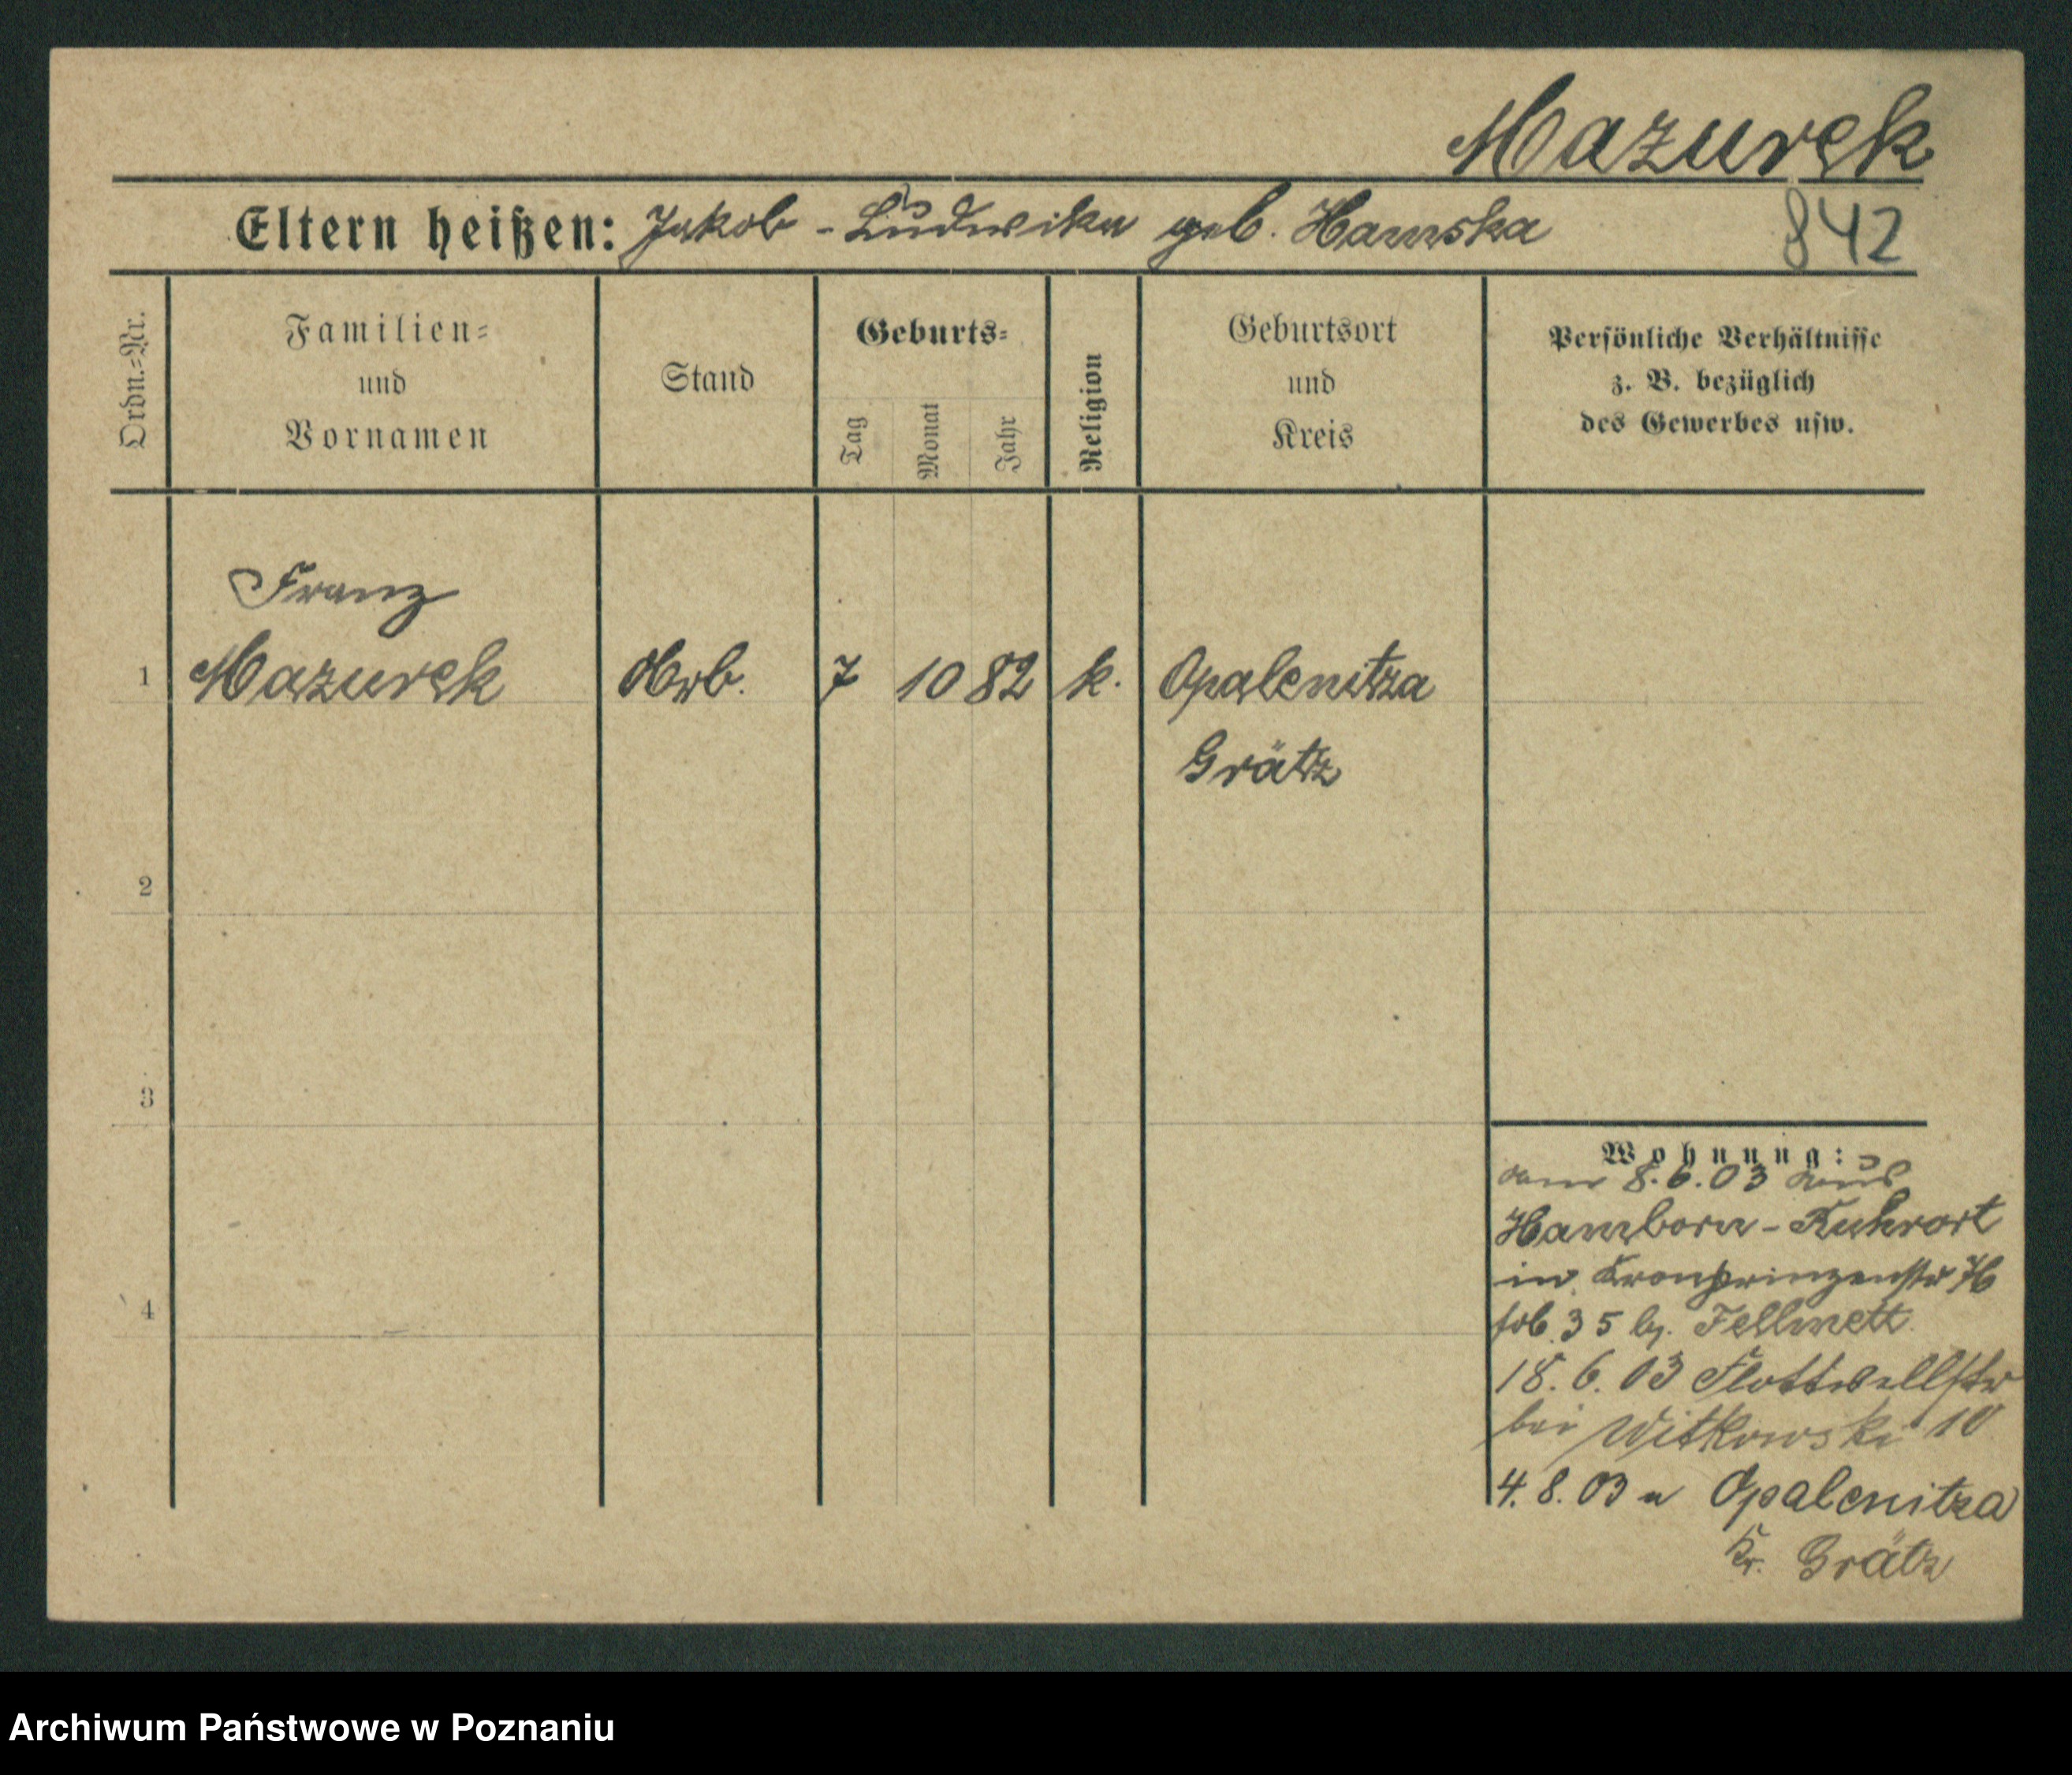 Mazurek
Eltern heißen: Jakob - Ludwika geb. Hamska
842
Ordn.=Nr.
Familien=
und
Vornamen
Stand
Geburts=
Tag
Monat
Jahr
Religion
Geburtsort
und
Kreis
Persönliche Verhältnisse
z. B. bezüglich
des Gewerbes usw.
Franz
1 Mazurek Arb. 7 10 82 k. Opalenitza
Grätz
2
3
4
Wohnung:
am 8.6.03 aus
Hamborn - Ruhrort
in Kronprinzenstr
35 b. Fellmett
18.6.03 Flottwellstr
bei Witkowski 10
4.8.03 n Opalenitza
Kr. Grätz
Archiwum Państwowe w Poznaniu